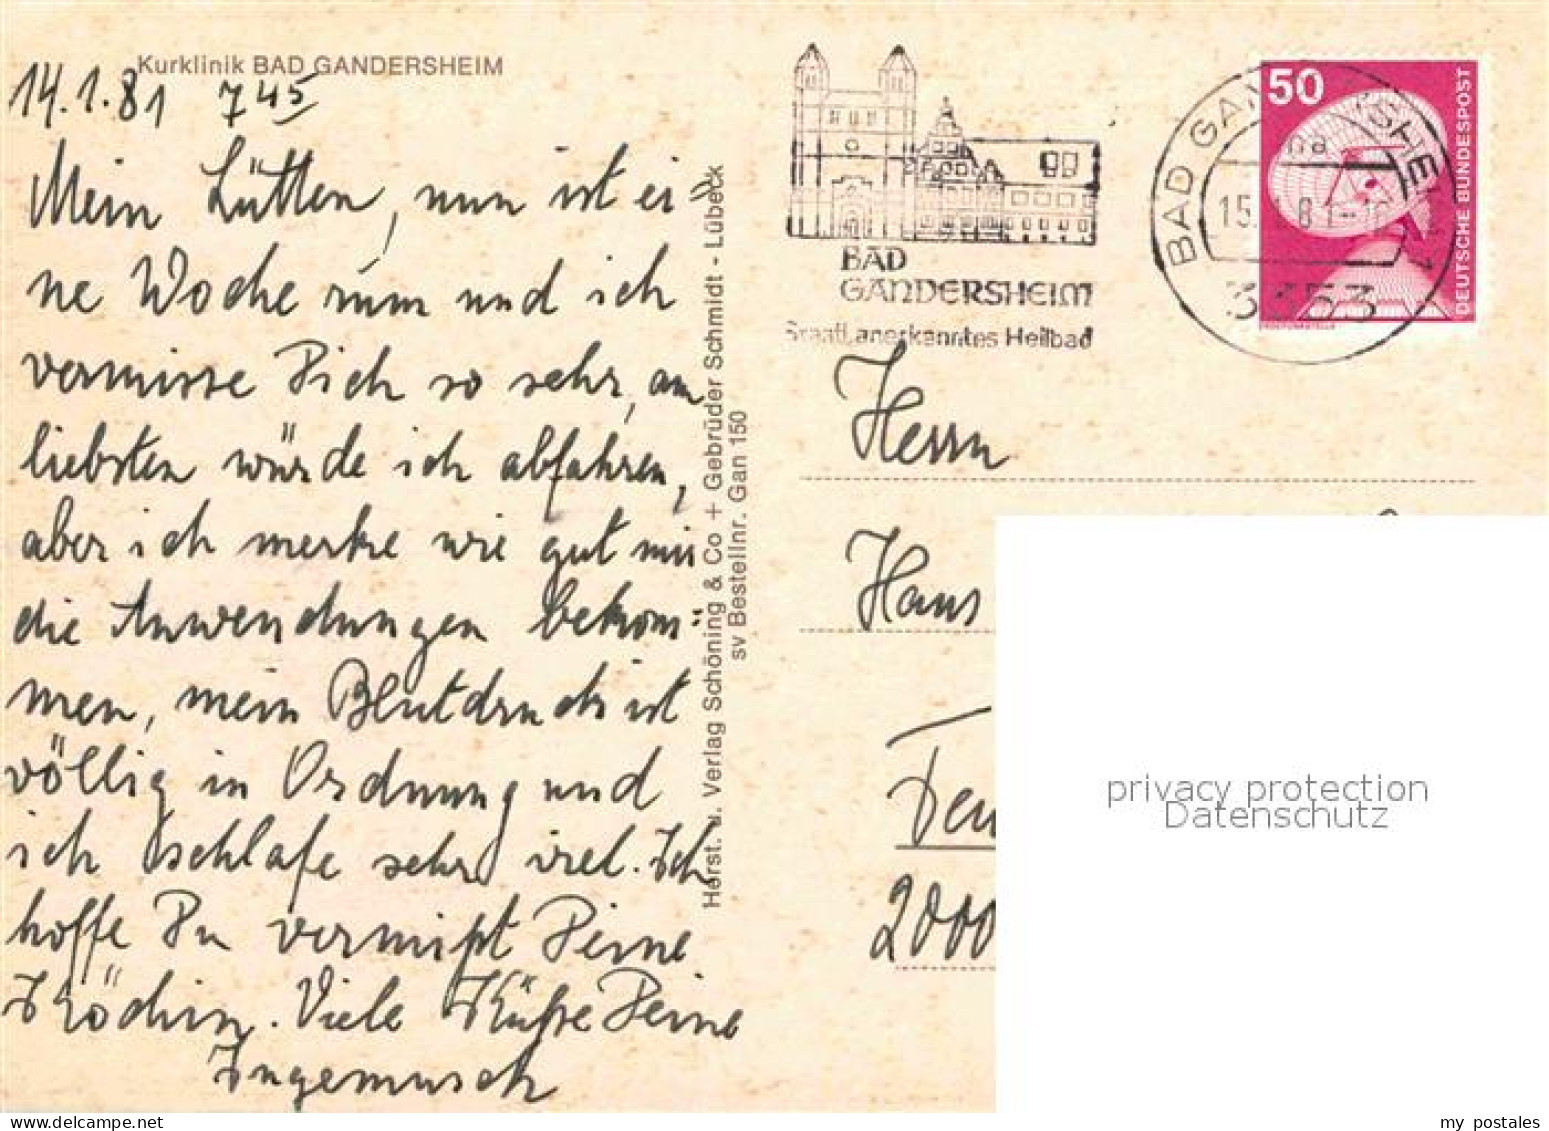 Kurklinik BAD GANDERSHEIM
14.1.81 7 45
Mein Lütten, nun ist ei=
ne Woche rum und ich
vermisse Dich so sehr, am
liebsten würde ich abfahren,
aber ich merke wie gut mir
die Anwendungen bekom=
men, mein Blutdruck ist
völlig in Ordnung und
ich schlafe sehr viel. Ich
hoffe Du vermißt Deine
Ködin. Viele Küße Deine
Ingemusch
Horst. u. Verlag Schöning & Co + Gebrüder Schmidt - Lübeck
sv Bestellnr. Gan 150
BAD
GANDERSHEIM
Staatl. anerkanntes Heilbad
BAD GANDERSHEIM 1
15.1.81-
3353
50
DEUTSCHE BUNDESPOST
Herrn
Hans
2000
privacy protection
Datenschutz
my postales